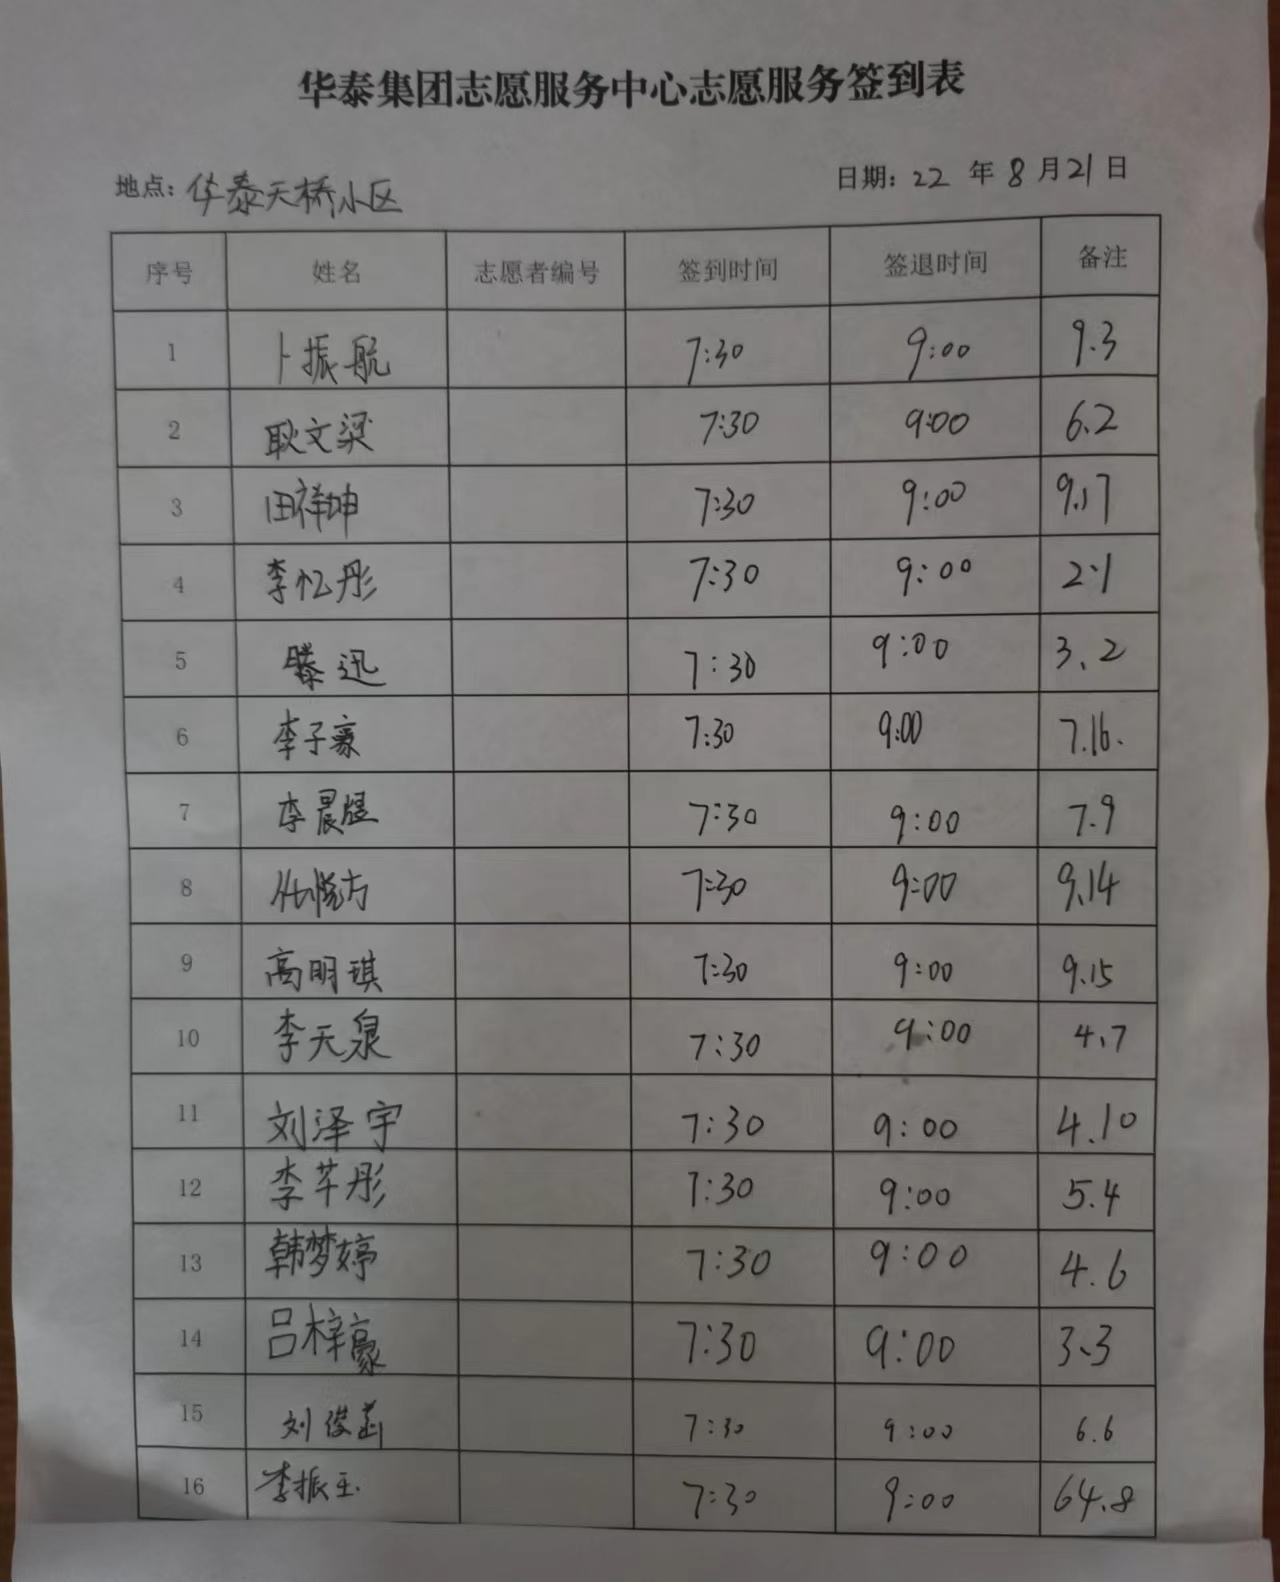 华泰集团志愿服务中心志愿服务签到表
地点：华泰天桥小区 日期：22 年 8 月 21 日
序号 姓名 志愿者编号 签到时间 签退时间 备注
1 卜振航 7:30 9:00 9.3
2 耿文梁 7:30 9:00 6.2
3 田祥坤 7:30 9:00 9.17
4 李忆彤 7:30 9:00 2.1
5 滕迅 7:30 9:00 3.2
6 李子豪 7:30 9:00 7.16.
7 李晨煜 7:30 9:00 7.9
8 7:30 9:00 9.14
9 高明琪 7:30 9:00 9.15
10 李天泉 7:30 9:00 4.7
11 刘泽宇 7:30 9:00 4.10
12 李芊彤 7:30 9:00 5.4
13 韩梦婷 7:30 9:00 4.6
14 吕梓豪 7:30 9:00 3.3
15 刘俊 7:30 9:00 6.6
16 李振玉 7:30 9:00 64.8